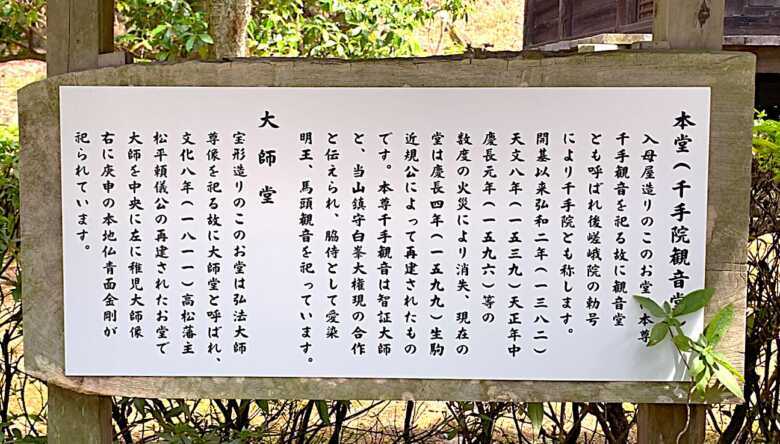 本堂(千手院観音堂
入母屋造りのこのお堂 本尊
千手観音を祀る故に観音堂
とも呼ばれ後嵯峨院の勅号
により千手院とも称します。
開基以来弘和二年(一三八二)
天文八年(一五三九)天正年中
慶長元年(一五九六)等の
数度の火災により消失、現在の
堂は慶長四年(一五九九)生駒
近規公によって再建されたもの
です。本尊千手観音は智証大師
と、当山鎮守白峯大権現の合作
と伝えられ、脇侍として愛染
明王、馬頭観音を祀っています。
大師堂
宝形造りのこのお堂は弘法大師
尊像を祀る故に大師堂と呼ばれ、
文化八年(一八一一)高松藩主
松平頼儀公の再建されたお堂で
大師を中央に左に稚児大師像
右に庚申の本地仏青面金剛が
祀られています。